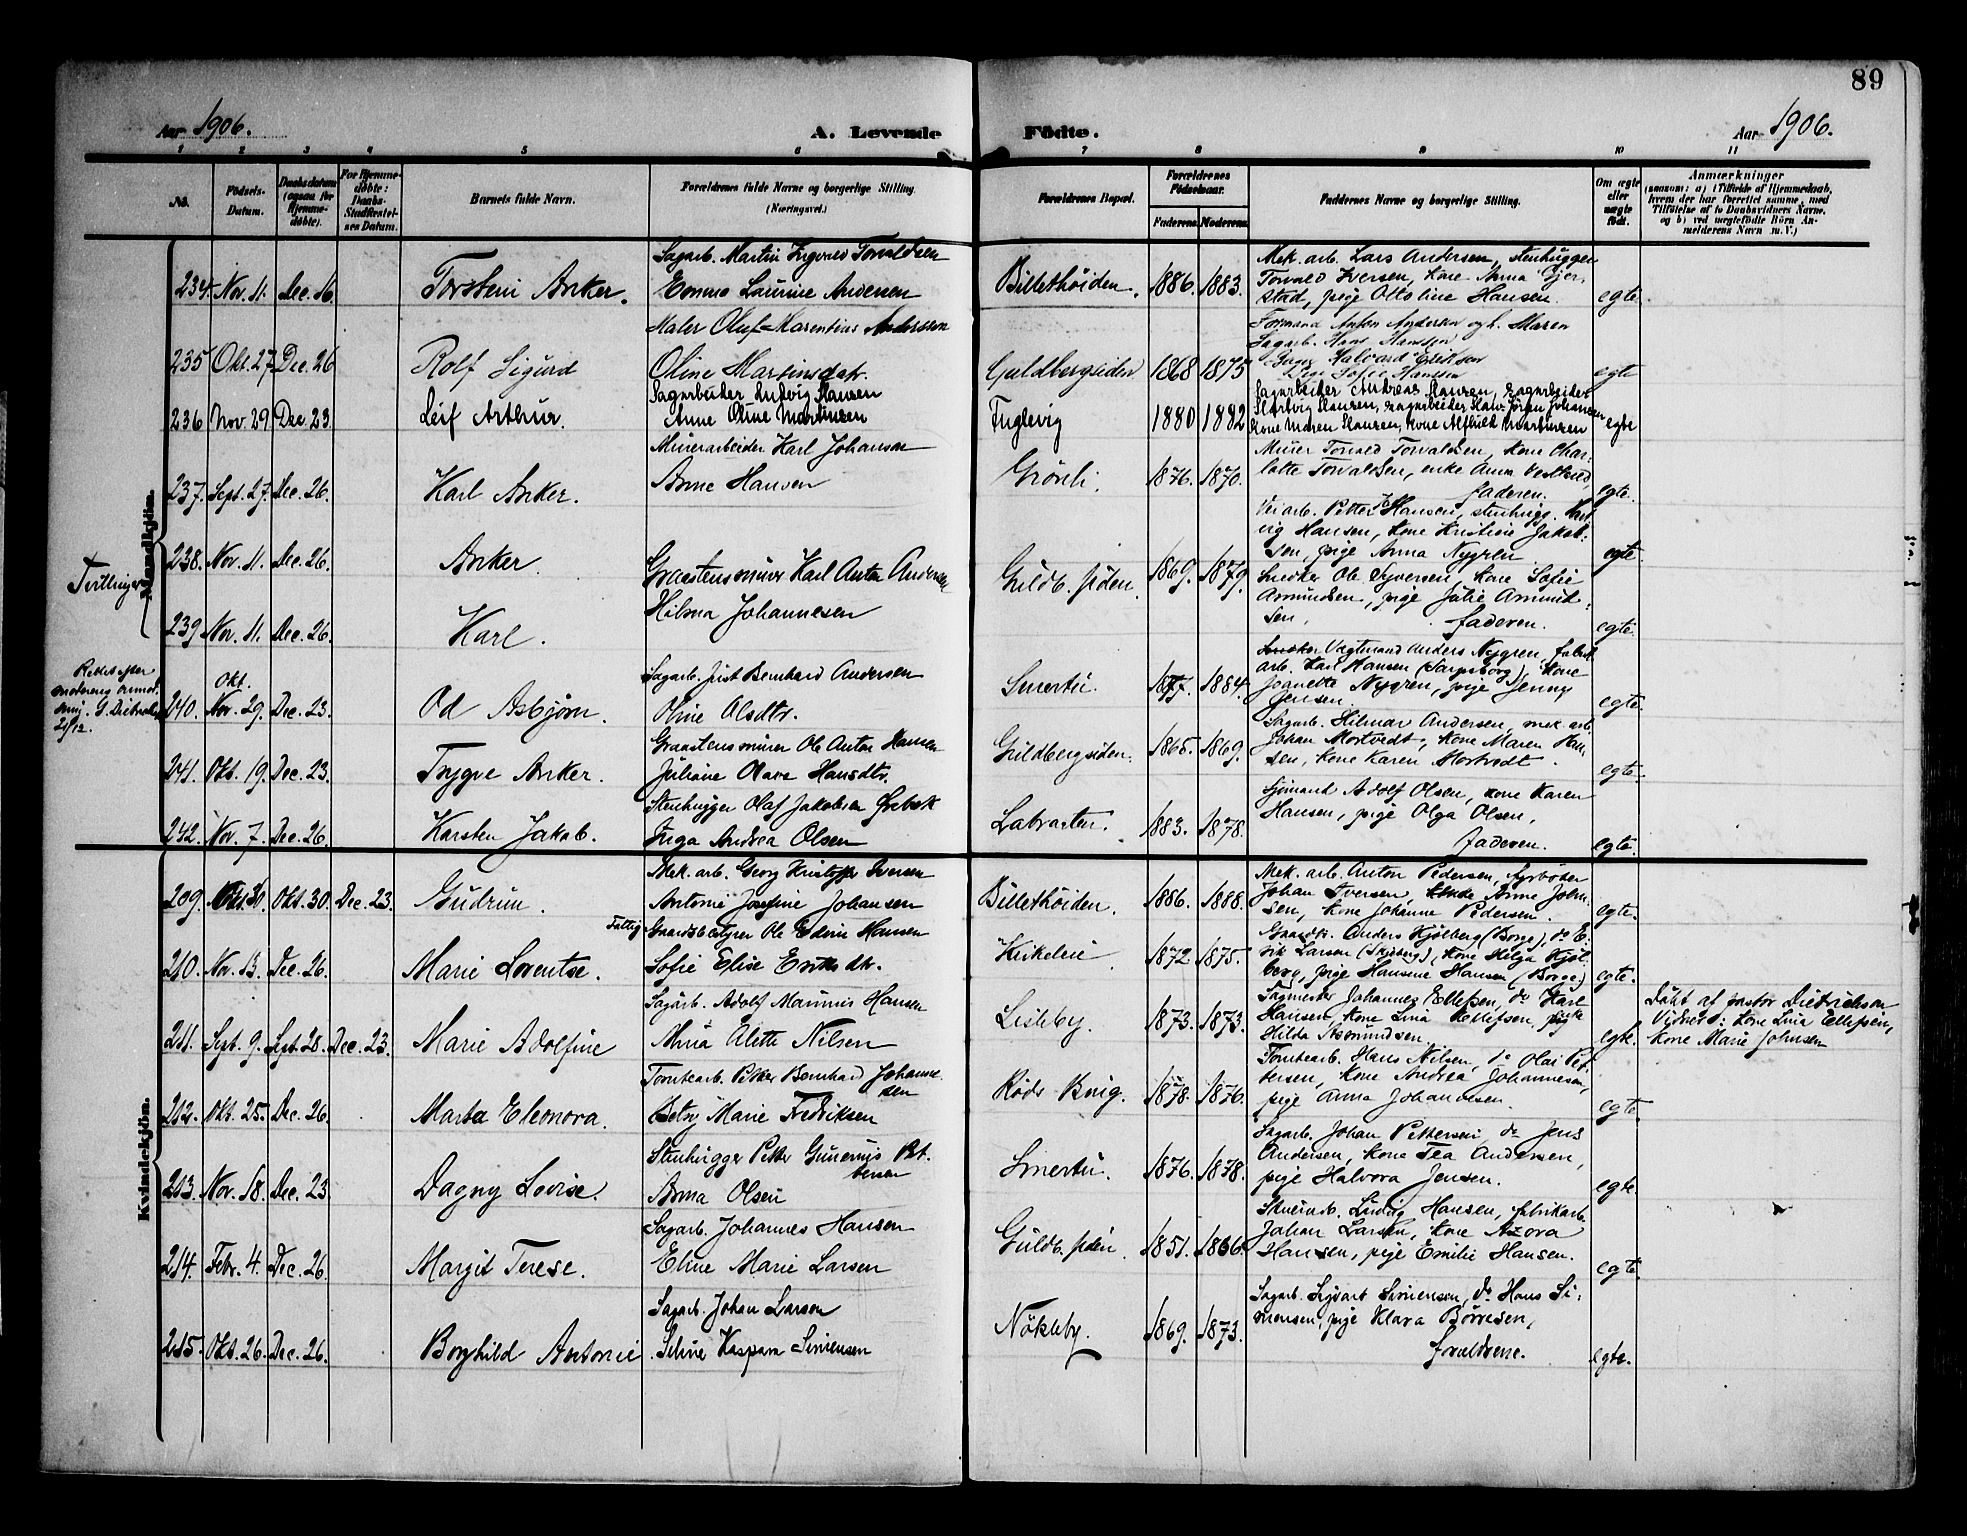 89
Aar 1906.
A. Levende
Födte.
Aar 1906.
1 2 3 4 5 6 7 8 9 10 11
No.
Födsels-
Datum.
Daabsdatum
(ogsaa for
Hjemme-
döbte).
For Hjemme-
döbte:
Daabs-
Stadfæstel-
ses Datum.
Barnets fulde Navn.
Forældrenes fulde Navne og borgerlige Stilling.
(Næringsvei.)
Forældrenes Bopæl.
Forældrenes
Födselsaar.
Faderens Moderens
Faddernes Navne og borgerlige Stilling.
Om ægte
eller
uægte
födt.
Anmærkninger
(saasom: a) i Tilfælde af Hjemmedaab,
hvem der har forrettet samme, med
Tilföielse af to Daabsvidners Navne,
og b) ved uægtefödte Börn An-
melderens Navn m. V.)
Mandkjön.
234. Nov. 11. Dec. 16.
Torstein Anker.
Sagarb. Martin Ingvald Torvaldsen
Emma Laurine Andersen
Billethöiden. 1886. 1883.
Mek. arb. Lars Andersen, stenhugger
Torvald Iversen, kone Anna Gjer-
stad, pige Ottoline Hansen. egte.
235 Okt. 27. Dec. 26
Rolf Sigurd
Maler Oluf Marentius Anderssen
Oline Martinsdatr.
Guldbergsiden 1868 1875
Formand Anton Andersen og h. Maren
Sagarb. Hans Hanssen
Halvard Eriksen
Pige Sofie Hanssen egte
236 Nov. 29 Dec. 23
Leif Arthur.
Sagarbeider Ludvig Hansen
Anne Oline Martinsen
Fuglevig 1880 1882
Sagarbeider Andreas Hansen, sagarbeider
Hartvig Hansen, sagarbeider Hans Jørgen Johansen
Kone Maren Hansen, Kone Alfhild Martinsen egte
237. Sept. 27. Dec. 26.
Karl Anker.
Minerarbeider Karl Johansen
Anne Hansen
Grönli. 1876. 1870.
Murer Torvald Torvaldsen, kone Char-
lotte Torvaldsen, enke Anna
faderen. egte.
Tvillinger
238. Nov. 11. Dec. 26.
Anker.
Graastensminer Karl Anton Andersen
Hilma Johannesen
Guldb. siden. 1869. 1879.
Veiarb. Petter Hansen, stenhugg. Hart-
vig Hansen, kone Kristine Jakob-
sen, pige Anna Nygren egte.
239 Nov. 11. Dec. 26.
Karl.
Snedker Ole Syversen, kone Sofie
Amundsen, pige Julie Amund-
sen, faderen. egte.
Rettet efter
240. Okt. Nov. 29. Dec. 23.
Od Asbjørn.
Sagarb. Just Bernhard Andersen
Oline Olsdtr.
Smertu. 1877. 1884.
Snedker Vagtmand Anders Nygren, fabrik-
arb. Karl Hansen (Sarpsborg), kone
Jeanette Nygren, pige Jenny
Jensen. egte.
241. Okt. 19. Dec. 23.
Trygve Anker.
Graastensminer Ole Anton Hansen
Juliane Olava Hansdtr.
Guldbergsiden. 1865. 1869.
Sagarb. Hilmar Andersen, mek. arb.
Johan Mortvedt, kone Maren Han-
sen, kone Karen Mortvedt. egte.
242. Nov. 7. Dec. 26.
Karsten Jakob.
Stenhugger Olaf Jakobsen Grebek
Inga Andrea Olsen
Labraaten. 1883. 1878.
Sjömand Adolf Olsen, kone Karen
Hansen, pige Olga Olsen,
faderen. egte.
Kvindekjön.
209. Okt. 30. Dec. 23.
Gudrun.
Mek. arb. Georg Kristoffer Iversen
Antonie Josefine Johansen
Billethöiden. 1886. 1888.
Mek. arb. Anton Pedersen, fyrböder
Johan Iversen, Anne John-
sen, kone Johanne Pedersen. egte.
210. Nov. 13. Dec. 26.
Marie Lorentse.
Fattig Gaardsbestyrer Ole Edvin Hansen
Sofie Elise Eriksdtr.
1872. 1875.
Gaardbr. Anders Kjölberg (Borge), do E-
rik Larsen (Skjeberg), kone Helga Kjöl-
berg, pige Hansine Hansen (Borge) egte.
211. Sept. 9. Sept. 28. Dec. 23.
Marie Adolfine
Sagarb. Adolf Marinius Hansen
Anna Alette Nilsen
Lisleby. 1873. 1873.
Sagmester Johannes Ellefsen, do Karl
Hansen, kone Lina Ellefsen, pige
Hilda Asmundsen. egte.
Döbt af pastor Dietrichson
Vidner: kone Lina Ellefsen,
kone Marie Johnsen
212. Okt. 25. Dec. 26.
Marta Eleonora.
Tomtearb. Petter Bernhard Johanne-
sen
Betsy Marie Fredriksen
Röds Brug. 1878. 1876.
Tomtearb. Hans Nilsen, do Olai Pet-
tersen, kone Andrea Johannesen,
pige Anna Johannesen. egte.
213. Nov. 18. Dec. 23.
Dagny Lovise.
Stenhugger Petter Gunerius Pet-
tersen
Anna Olsen
Smertu. 1876. 1878.
Sagarb. Johan Pettersen, do Jens
Andersen, kone Tea Andersen,
pige Halvora Jensen. egte.
214. Febr. 4. Dec. 26.
Margit Terese.
Sagarb. Johannes Hansen
Eline Marie Larsen
Guldb. siden. 1851. 1866.
Ludvig Hansen, fabrikarb.
Johan Larsen, kone Azora
Hansen, pige Emilie Hansen. egte.
215. Okt. 26. Dec. 26.
Borghild Antonie
Sagarb. Johan Larsen
Seline Kaspara Simensen
Nökleby. 1869. 1873.
Sagarb. Sigvart Simensen, do Hans Si-
mensen, pige Klara Börresen,
forældrene. egte.